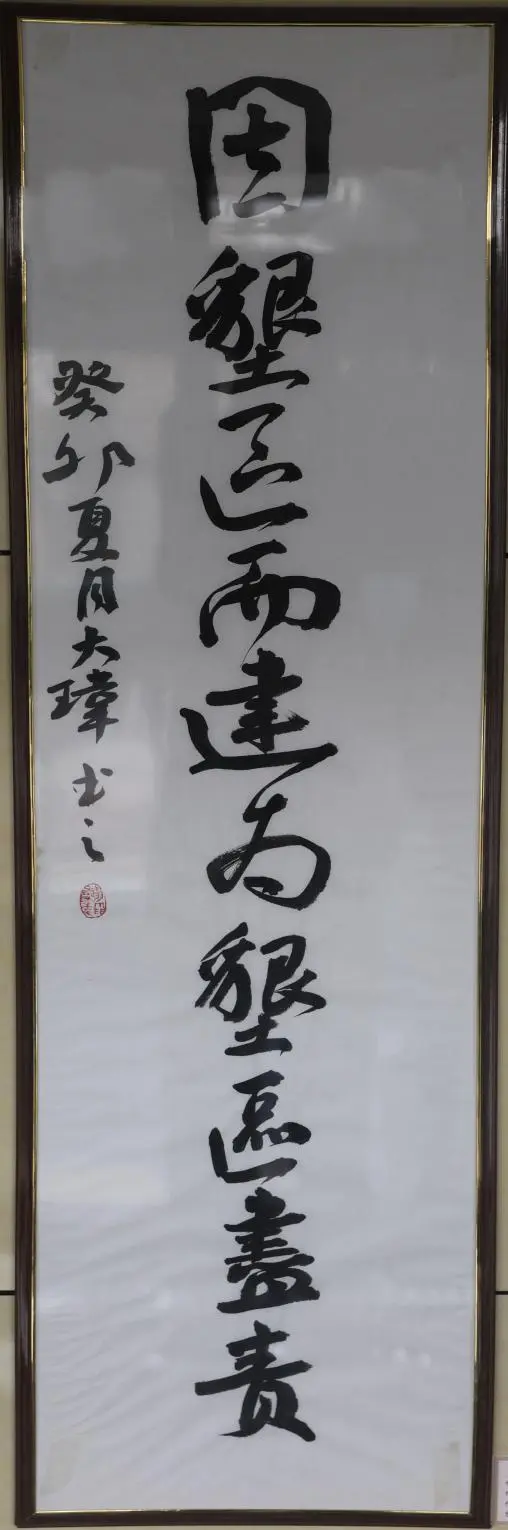 因墾區而建為墾區盡責
癸卯夏月大瑋書之